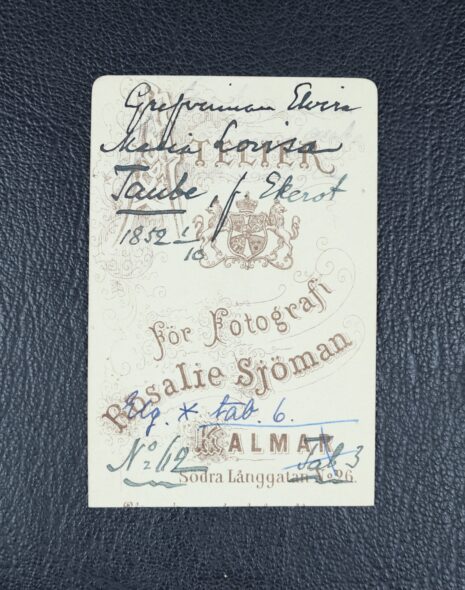 Grefvinnan Elvira
Maria Lovisa
ATELIER
Taube, f. Ekerot
1852 1/10
För Fotografi
Rosalie Sjöman
tab. 6.
KALMAR
No 112
Tab 3
Södra Långgatan No 26.